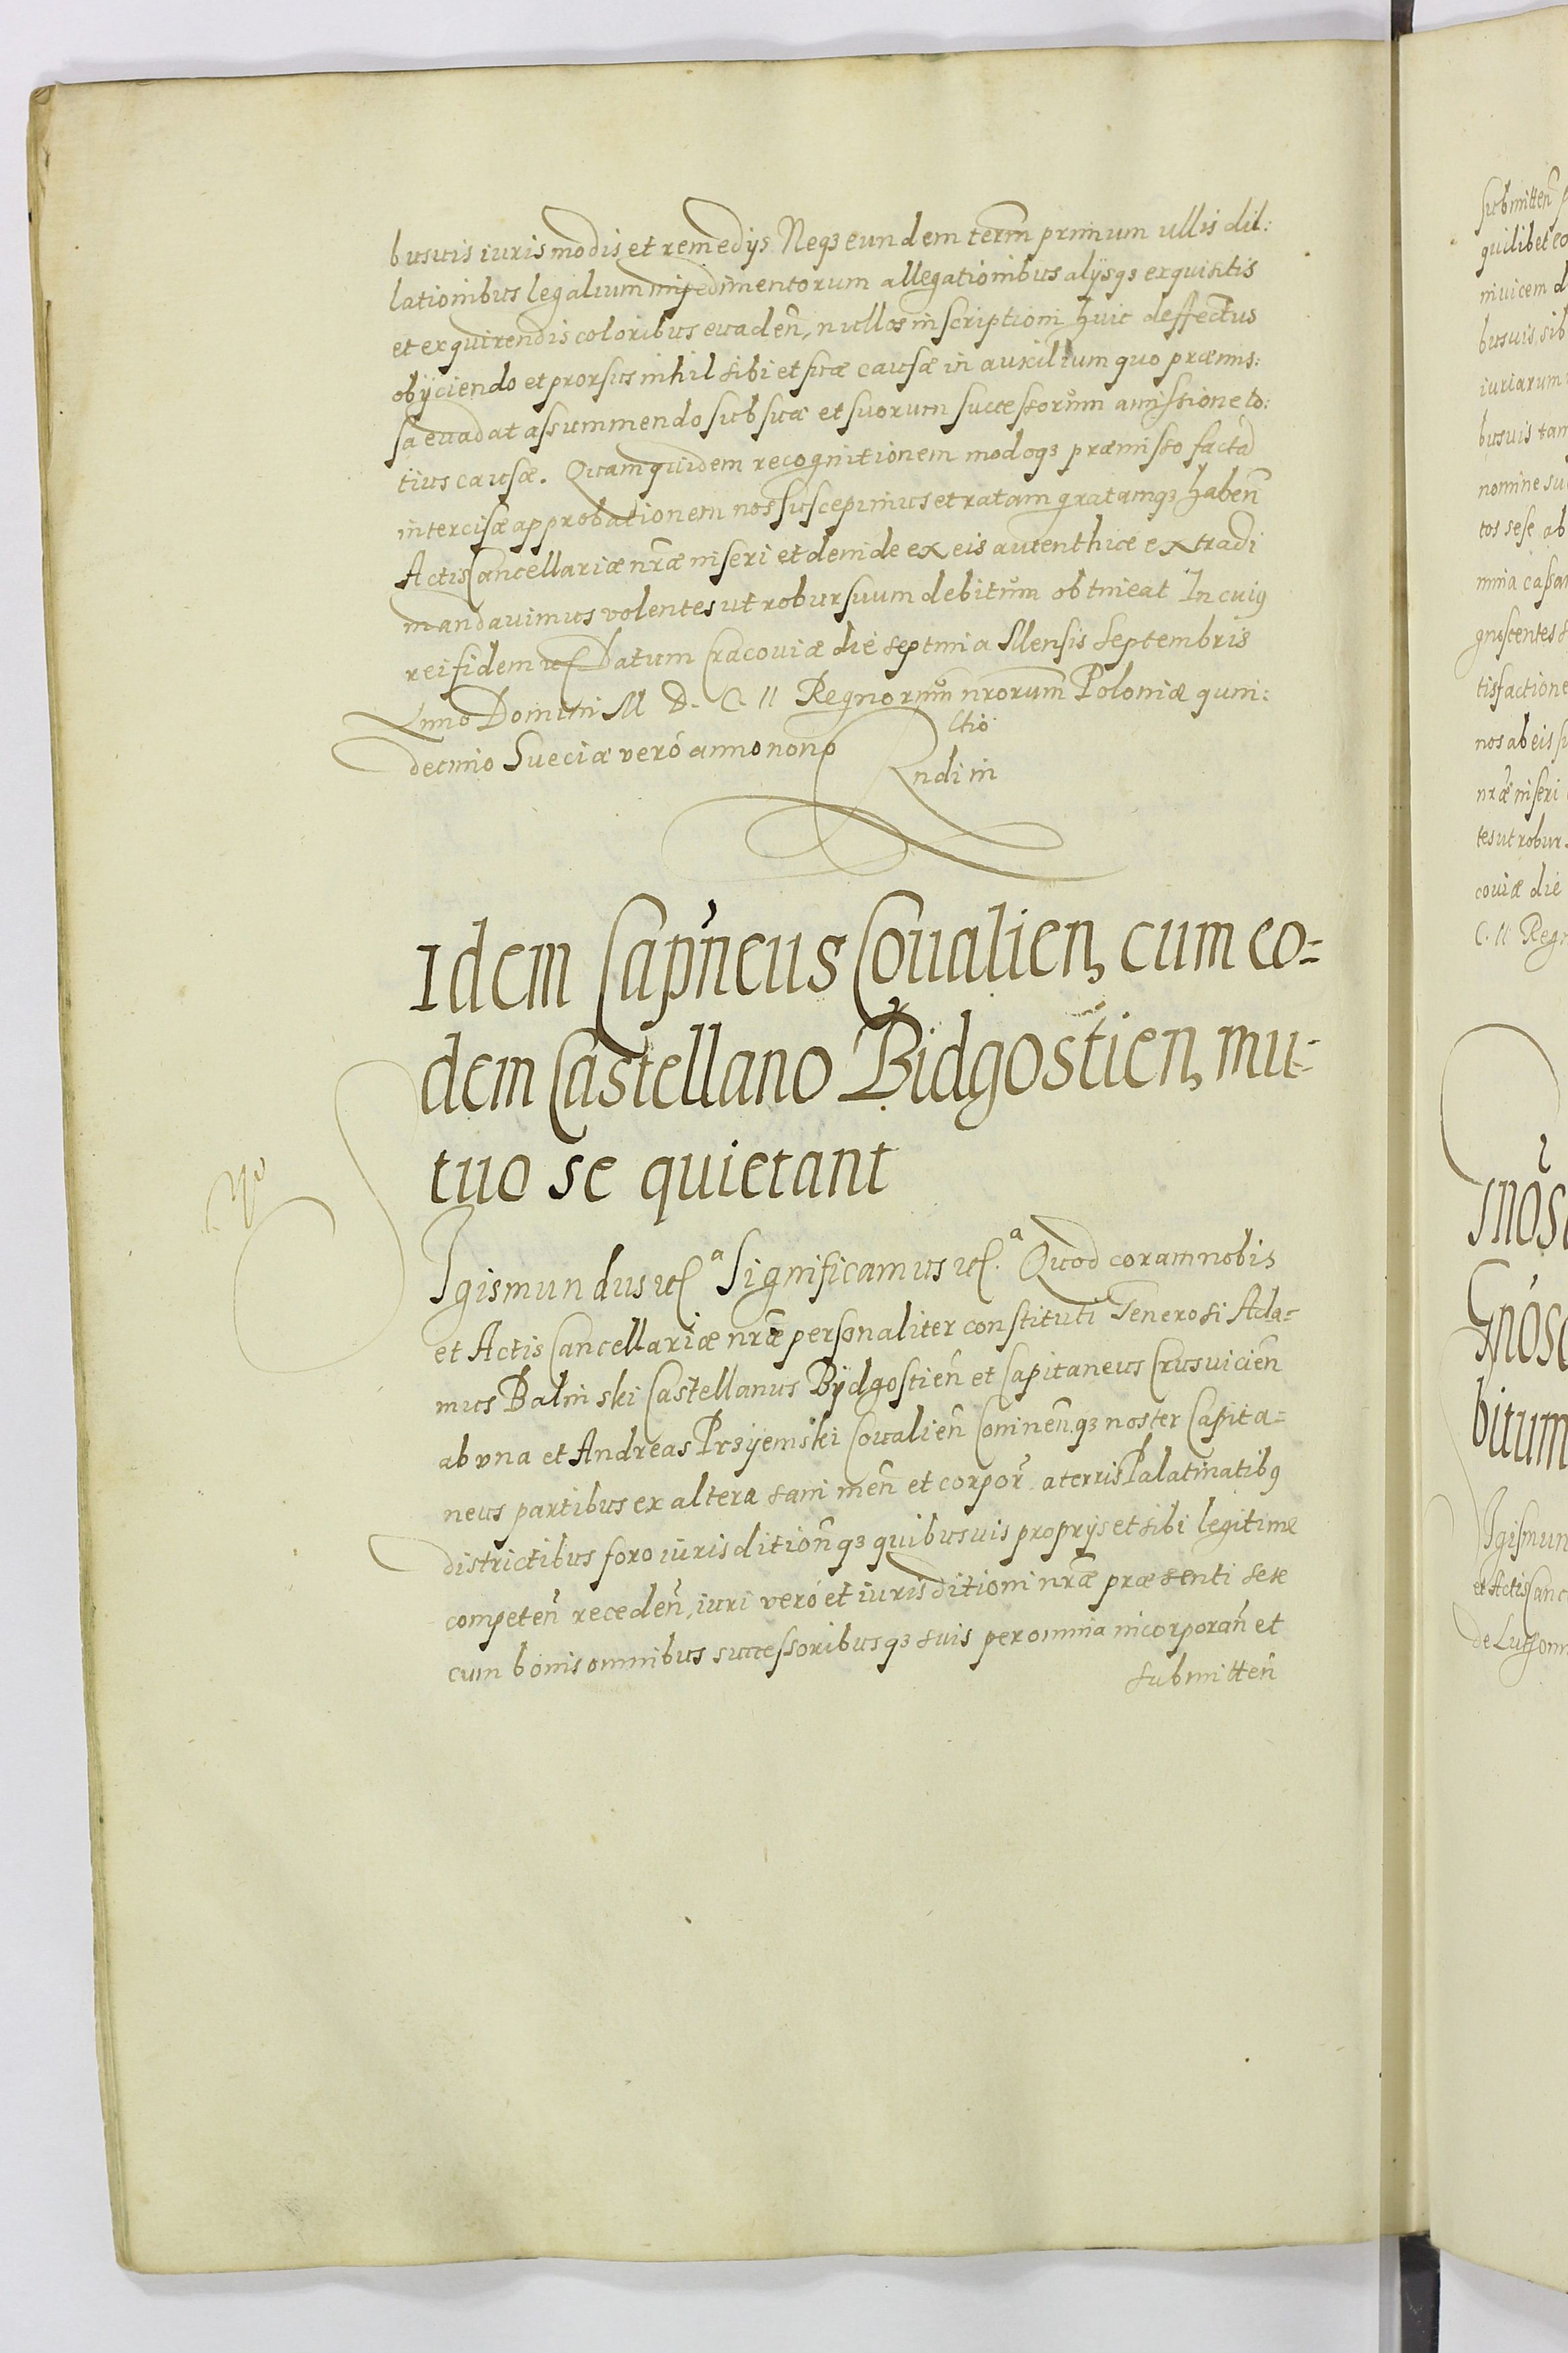 busuis iuris modis et remedijs Neqꝫ eundem term̃ primum ullis dil:
lationibus legalium impedimentorum allegationibus alijsqꝫ exquisitis
et exquirendis coloribus euaden̄, nullos inscriptioni huic deffectus
obijciendo et prorsus nihil sibi et suæ causæ in auxilium quo præmis:
sa euadat assummendo sub suæ et suorum successorum amissione to:
tius causæ. Quam quidem recognitionem modoqꝫ præmisso factā
intercisæ approbationem nos suscepimus et ratam gratamqꝫ haben̄
Actis Cancellariæ nr̃æ inseri et deinde ex eis autenthice extradi
mandauimus volentes ut robur suum debitum obtineat In cuiꝰ
rei fidem etc̃ Datum Cracouiæ die septima Mensis Septembris
Anno Domini M D. C. II Regnorum nrorum Poloniæ quin:
decimo Sueciæ veró anno nono
Idem Capñeus Coualien, cum eo=
dem Castellano Bidgostien, mu=
tuo se quietant
Sigismundus etc̃ᵃ Significamus etc̃.ᵃ Quod coram nobis
et Actis Cancellariæ nr̃æ personaliter constituti Generosi Ada=
mus Balinski Castellanus Bydgostien̄ et Capitaneus Crusuicien̄
ab vna et Andreas Przyiemski Coualien̄ Coninen̄qꝫ noster Capita=
neus partibus ex altera sani men̄ et corpor̃ a terris Palatinatibꝰ
districtibus foro iurisdition̄qꝫ quibusuis proprijs et sibi legitime
competen̄ receden̄, iuri veró et iurisditioni nr̃æ præsenti sese
cum bonis omnibus successoribusqꝫ suis per omnia incorporan̄ et
submitten̄
submitten̄
quilibet eo
inuicem d
busuis, sib
iuriarum
busuis tam
nomine su
tos sese ab
mnia cassa
gnoscentes
tisfactione
nos ab eis
nr̃æ inseri
tes ut robur
couiæ die
C. II Regn
Gnōs
bitum
Sigismun
et Actis Canc